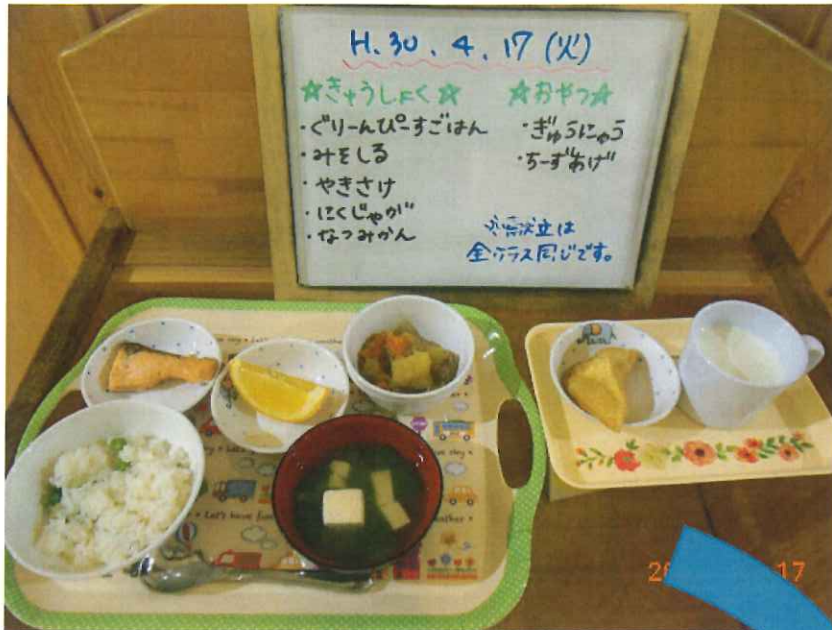 H.30.4.17(火)
☆きゅうしょく☆
・ぐりーんぴーすごはん
・みそしる
・やきさけ
・にくじゃが
・なつみかん
☆おやつ☆
・ぎゅうにゅう
・ちーずあげ
献立は
全クラス同じです。
Let's have fun
17